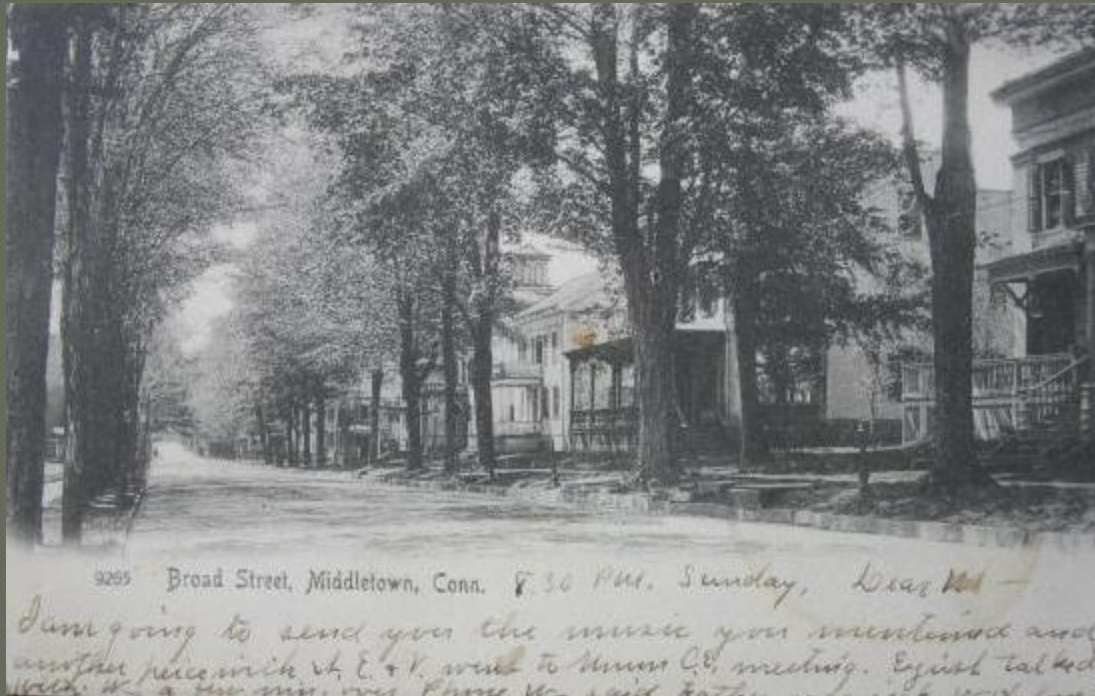 9265 Broad Street, Middletown, Conn. 8.30 P.M. Sunday, Dear
I am going to send you the music you mentioned and
another piece with it. E. & V. went to Union C.E. meeting. E just talked
with a few min. over Phone said